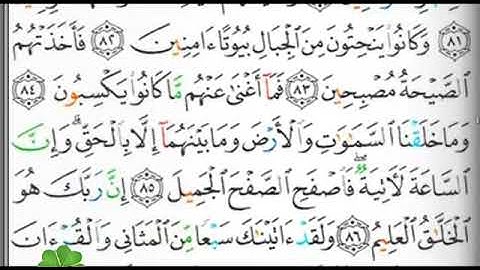 ٨١ وَكَانُوا۟ يَنْحِتُونَ مِنَ ٱلْجِبَالِ بُيُوتًا ءَامِنِينَ ٨٢ فَأَخَذَتْهُمُ
ٱلصَّيْحَةُ مُصْبِحِينَ ٨٣ فَمَآ أَغْنَىٰ عَنْهُم مَّا كَانُوا۟ يَكْسِبُونَ ٨٤
وَمَا خَلَقْنَا ٱلسَّمَـٰوَٰتِ وَٱلْأَرْضَ وَمَا بَيْنَهُمَآ إِلَّا بِٱلْحَقِّ ۗ وَإِنَّ
ٱلسَّاعَةَ لَـَٔاتِيَةٌ ۖ فَٱصْفَحِ ٱلصَّفْحَ ٱلْجَمِيلَ ٨٥ إِنَّ رَبَّكَ هُوَ
ٱلْخَلَّـٰقُ ٱلْعَلِيمُ ٨٦ وَلَقَدْ ءَاتَيْنَـٰكَ سَبْعًا مِّنَ ٱلْمَثَانِى وَٱلْقُرْءَانَ